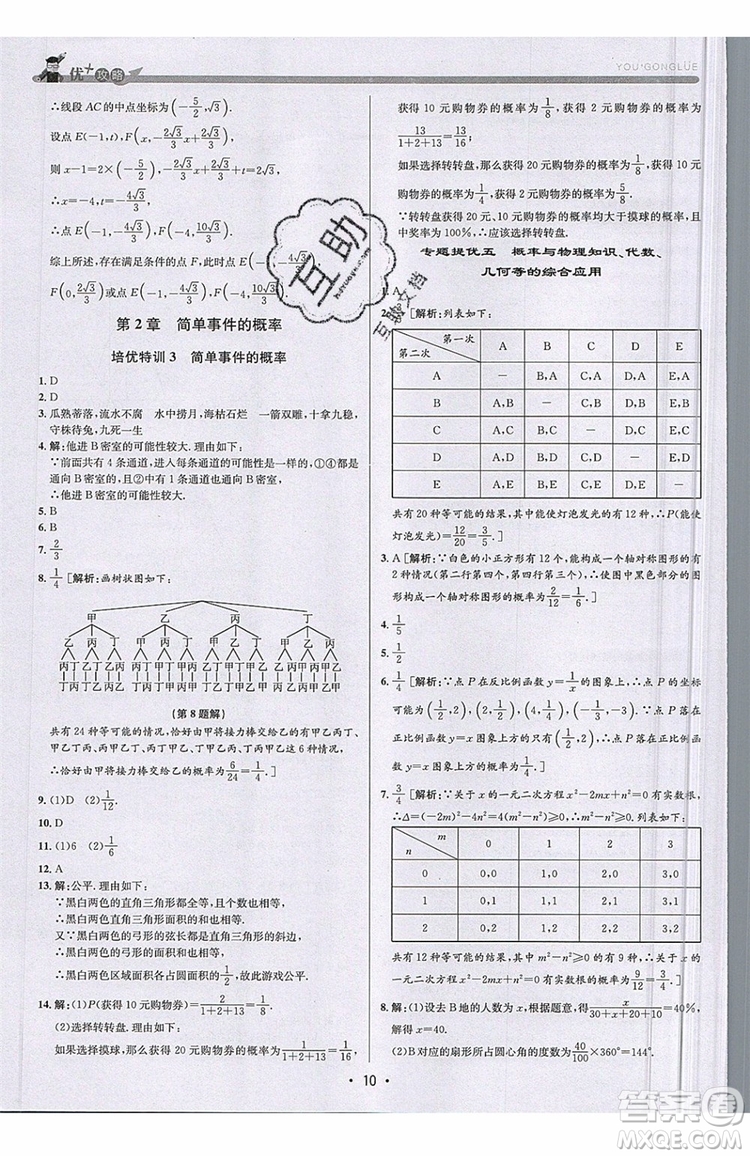 优+攻略
YOU+GONGLUE
∴线段 AC 的中点坐标为(-5/2, √3).
设点 E(-1,t),F(x,-2√3/3 x-2√3/3),
则 x-1=2×(-5/2),
∴x=-4,t=-4√3/3,
∴点 E(-1,-4√3/3),F(-4,10√3/3).
综上所述,满足条件的点 F,此时 E(-1,-4√3/3),
F(0,2√3/3)或点 E(-1,-4√3/3),F(-4,10√3/3).
第 2 章 简单事件的概率
培优特训 3 简单事件的概率
1. D
2. D
3. 瓜熟蒂落,流水不腐 水中捞月,海枯石烂 一箭双雕,十拿九稳,
守株待兔,九死一生
4. 解:他进 B 密室的可能性较大. 理由如下:
∵前面共有 4 条通道,进入每条通道的可能性是一样的,①④都是
通向 B 密室的,②中有 1 条通向 A 密室,有 2 条通向 B 密室,
∴他进入 B 密室的可能性较大.
5. B
6. B
7. 2/3
8. 1/4 [解析:画树状图如下:
甲 乙 丙 丁
乙 丙 丁 甲 丙 丁 甲 乙 丁 甲 乙 丙
(第 8 题解)
共有 24 种等可能的情况,恰好由甲将接力棒交给乙的有甲乙丙丁、
甲乙丁丙、丙甲乙丁、丙丁甲乙、丁甲乙丙、丁丙甲乙 6 种情况,
∴恰好由甲将接力棒交给乙的概率为 6/24=1/4.]
9. (1)D (2)1/2
10. D
11. (1)6 (2)1/6
12. A
13. 解:公平. 理由如下:
∵黑白两色的直角三角形都全等,且直角三角形的个数也相等,
∴黑白两色的直角三角形面积的和也相等.
又∵黑白两色的弓形的弦长都是直角三角形的斜边,
∴黑白两色的弓形的面积和也相等,
∴黑白两色区域面积各占圆面积的 1/2,故此游戏公平.
14. 解:(1)P(获得 10 元购物券)=2/(1+2+13)=1/8.
(2)选择转转盘. 理由如下:
如果选择摸球,那么获得 20 元购物券的概率为 1/(1+2+13)=1/16,
获得 10 元购物券的概率为 1/8,获得 2 元购物券的概率为
13/(1+2+13)=13/16;
如果选择转转盘,那么获得 20 元购物券的概率为 1/8,获得 10 元
购物券的概率为 1/4,获得 2 元购物券的概率为 5/8.
∵转转盘获得 20 元、10 元购物券的概率均大于摸球的概率,且
中奖率为 100%,∴应该选择转转盘.
专题提优五 概率与物理知识、代数、
几何等的综合应用
1. A
[解析:列表如下:
第二次 第一次 A B C D E
A — B,A C,A D,A E,A
B A,B — C,B D,B E,B
C A,C B,C — D,C E,C
D A,D B,D C,D — E,D
E A,E B,E C,E D,E —
共有 20 种等可能的结果,其中能使灯泡发光的有 12 种,∴P(能使
灯泡发光)=12/20=3/5.]
3. A [解析:∵白色的小正方形有 12 个,能构成一个轴对称图形的有
2 种情况(第二行第四个,第四行第三个),∴使图中黑色部分的图
形仍然构成一个轴对称图形的概率为 2/12=1/6.]
4. 1/5
5. 1/3
6. 1/4 [解析:∵点 P 在反比例函数 y=1/x 的图象上,∴点 P 的坐标
可能为(1/2,2),(2,1/2),(-1,-1),(-1/3,-3).∵点 P 落在正
比例函数 y=x 图象上方的有(1/2,2),∴点 P 落在正比例函数
y=x 图象上方的概率为 1/4.]
7. 3/4 [解析:∵关于 x 的一元二次方程 x²-2mx+n²=0 有实数根,
∴Δ=(-2m)²-4n²=4(m²-n²)≥0,∴m²-n²≥0. 列表如下:
n m 0 1 2 3
0 0,0 1,0 2,0 3,0
1 0,1 1,1 2,1 3,1
2 0,2 1,2 2,2 3,2
共有 12 种等可能的结果,其中 m²-n²≥0 的有 9 种,∴关于 x 的
一元二次方程 x²-2mx+n²=0 有实数根的概率为 9/12=3/4.]
8. 解:(1)设去 B 地的人数为 x,根据题意,得 x/(30+x+20+10)=40%,
解得 x=40.
(2)B 对应的扇形所占圆心角的度数为 40/100×360°=144°.
· 10 ·
互助文档
答案圈
MXQE.COM